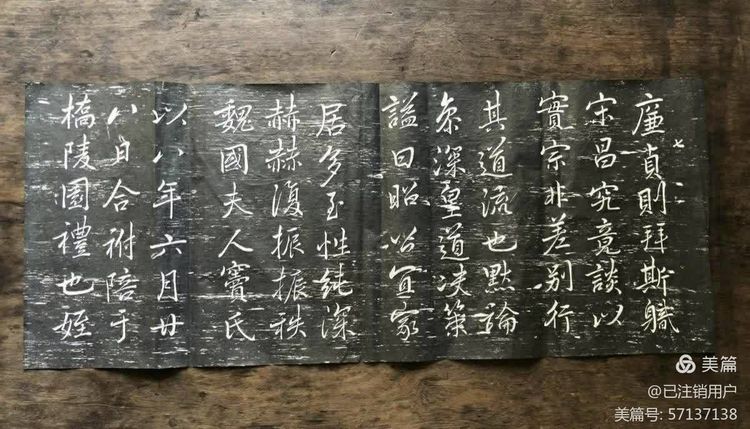 廉貞則拜斯職
宋昌究竟談以
實宗非差别行
其道流也點論
深聖道决策
謚曰昭以宜家
居多至性純深
赫赫復振振秩
魏國夫人竇氏
以八年六月廿
八日合祔陪于
橋陵園禮也姪
美篇
@已注销用户
美篇号: 57137138